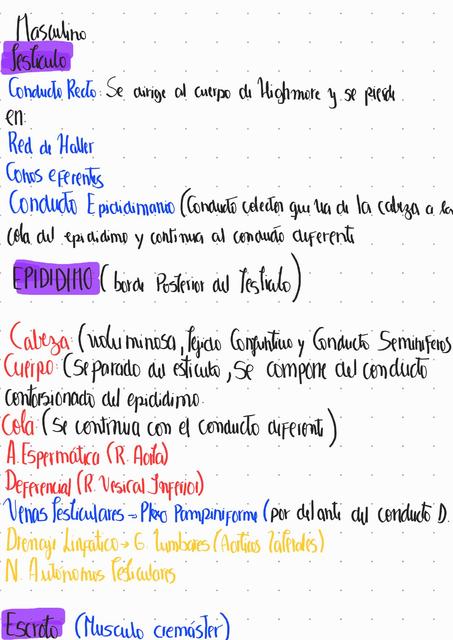 Masculino
Testiculo
Conducto Recto: Se dirige al cuerpo de Highmore y se pierde
en:
Red de Haller
Conos eferentes
Conducto Epididimario (Conducto colector que va de la cabeza a la
cola del epididimo y continua al conducto deferente
EPIDIDIMO (borde Posterior del Testiculo)
Cabeza (voluminosa, Tejido Conjuntivo y Conducto Seminiferos
Cuerpo: (separado del testiculo, se compone del conducto
contorsionado del epididimo.
Cola: (se continua con el conducto diferente)
A. Espermática (R. Aorta)
Deferencial (R. Vesical Inferior)
Venas Testiculares → Plexo Pampiniforme (por delante del conducto D.
Drenaje Linfático → G. Lumbares (Aorticos laterales)
N. Autónomos Testiculares
Escroto (Musculo cremáster)